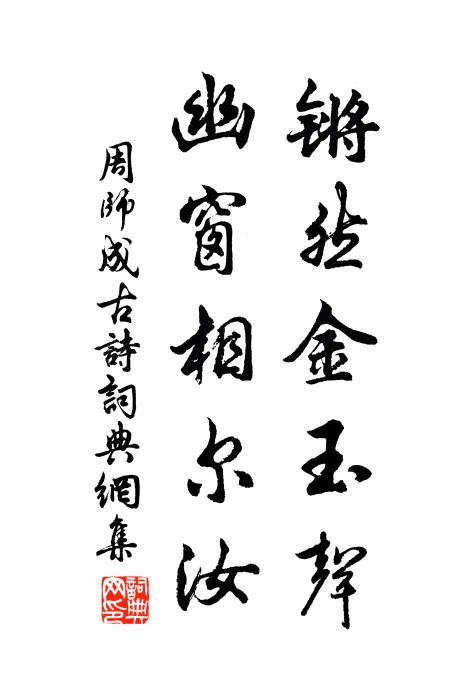 锵然金玉聲
幽窗相尔汝
周師成古詩詞典網集
詞典网印